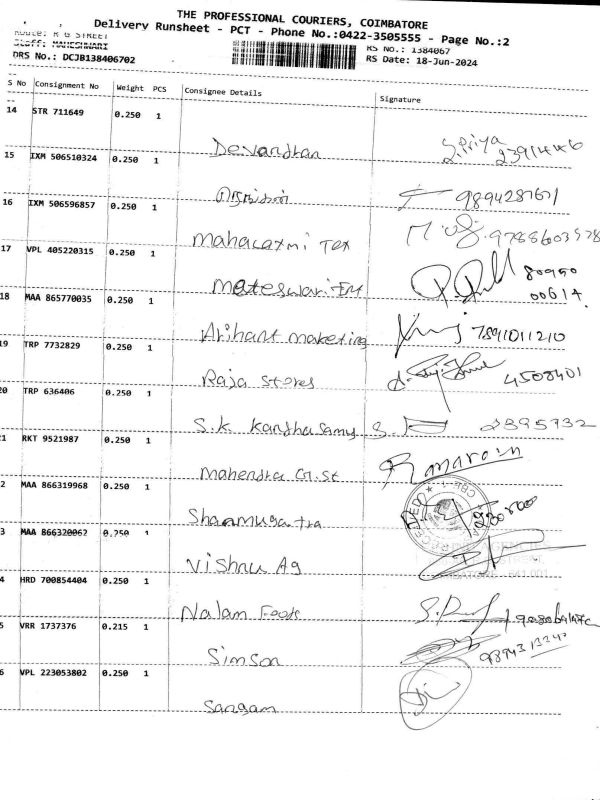 THE PROFESSIONAL COURIERS, COIMBATORE
Delivery Runsheet - PCT - Phone No.:0422-3505555 - Page No.:2
Route: R G STREET
Staff: MAHESHWARI
RS No.: 1384067
DRS No.: DCJB138406702
RS Date: 18-Jun-2024
S No Consignment No Weight PCS Consignee Details Signature
14 STR 711649 0.250 1 Devandhan 2391446
15 IXM 506510324 0.250 1 9894287671
16 IXM 506596857 0.250 1 Mahalaxmi Tex
17 VPL 405220315 0.250 1 Mateswari
18 MAA 865770035 0.250 1 Arihant marketing
19 TRP 7732829 0.250 1 Raja Stores 4508401
20 TRP 636406 0.250 1 S.K Kandhasamy 2395732
1 RKT 9521987 0.250 1 Mahendra G.St
2 MAA 866319968 0.250 1 Shanmuga tra
3 MAA 866320062 0.250 1 Vishnu Ag
4 HRD 700854404 0.250 1 Nalam Foods
5 VRR 1737376 0.215 1 Simson
6 VPL 223053802 0.250 1 Sangam